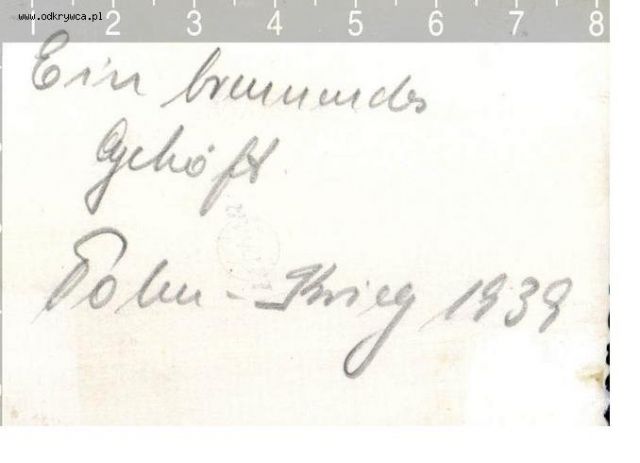 www.odkrywca.pl
1 2 3 4 5 6 7 8
Ein brennendes
Gehöft
Polen-Krieg 1939